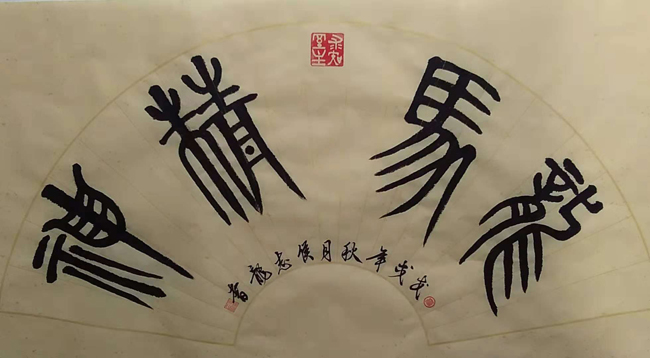 龍馬精神
戊戌年秋月侯志書